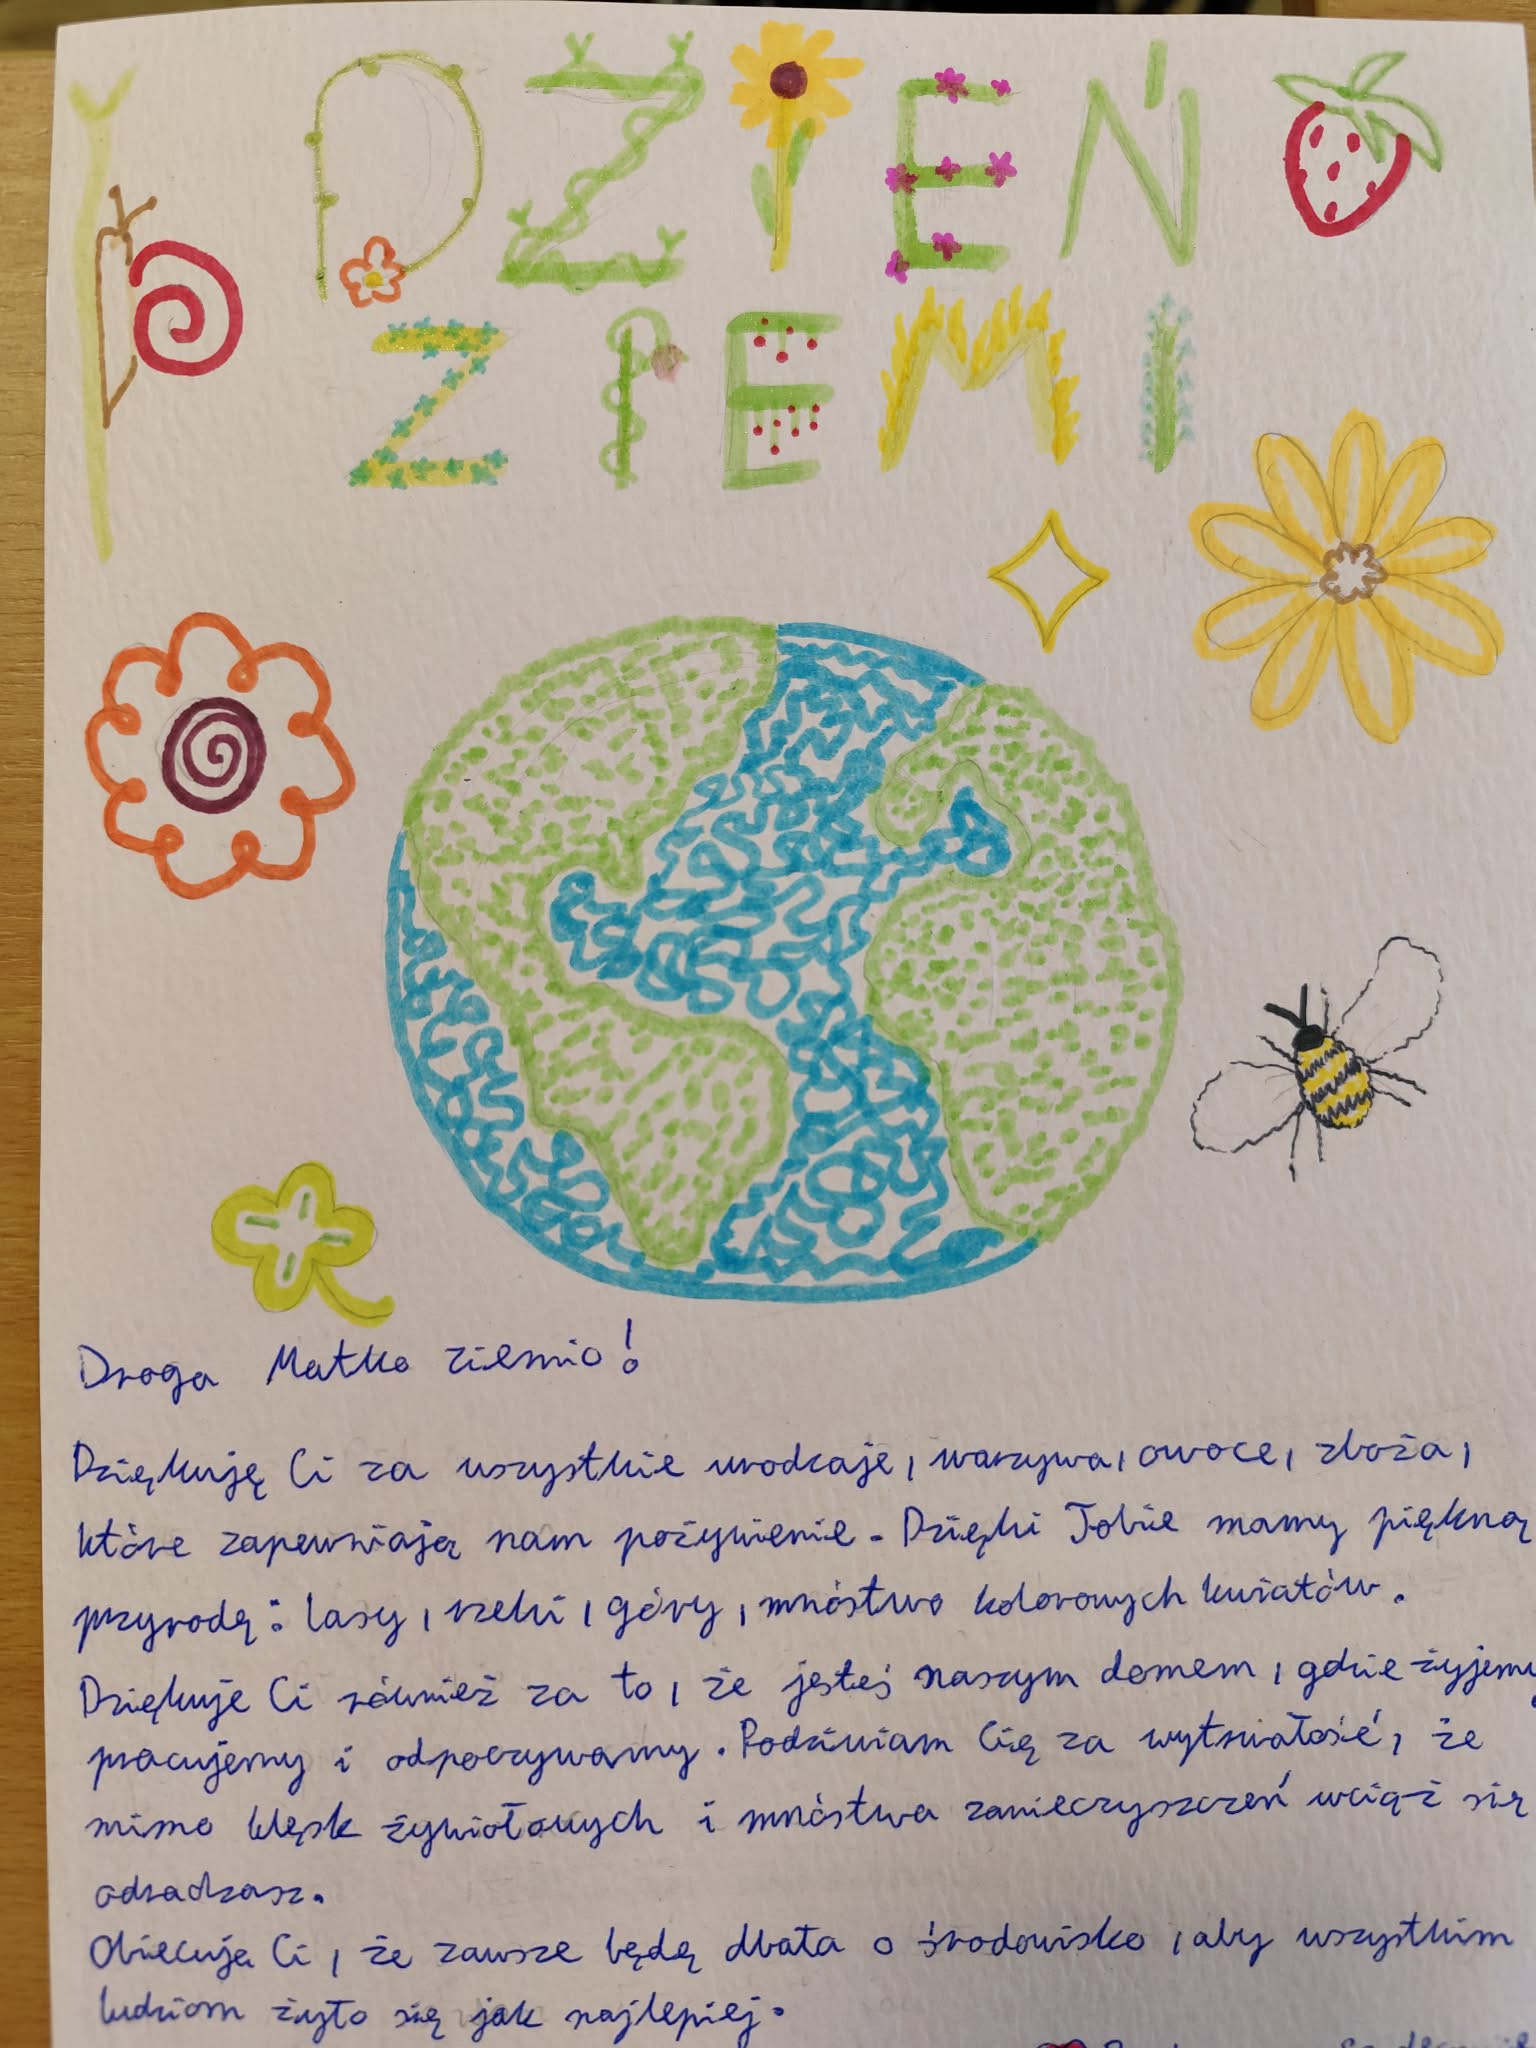 DZIEŃ
ZIEMI
Droga Matko Ziemio!
Dziękuję Ci za wszystkie urodzaje, warzywa, owoce, zboża,
które zapewniają nam pożywienie. Dzięki Tobie mamy piękną
przyrodę: lasy, rzeki, góry, mnóstwo kolorowych kwiatów.
Dziękuje Ci również za to, że jesteś naszym domem, gdzie żyjemy,
pracujemy i odpoczywamy. Podziwiam Cię za wytrwałość, że
mimo klęsk żywiołowych i mnóstwa zanieczyszczeń wciąż się
odradzasz.
Obiecuję Ci, że zawsze będę dbała o środowisko, aby wszystkim
ludziom żyło się jak najlepiej.